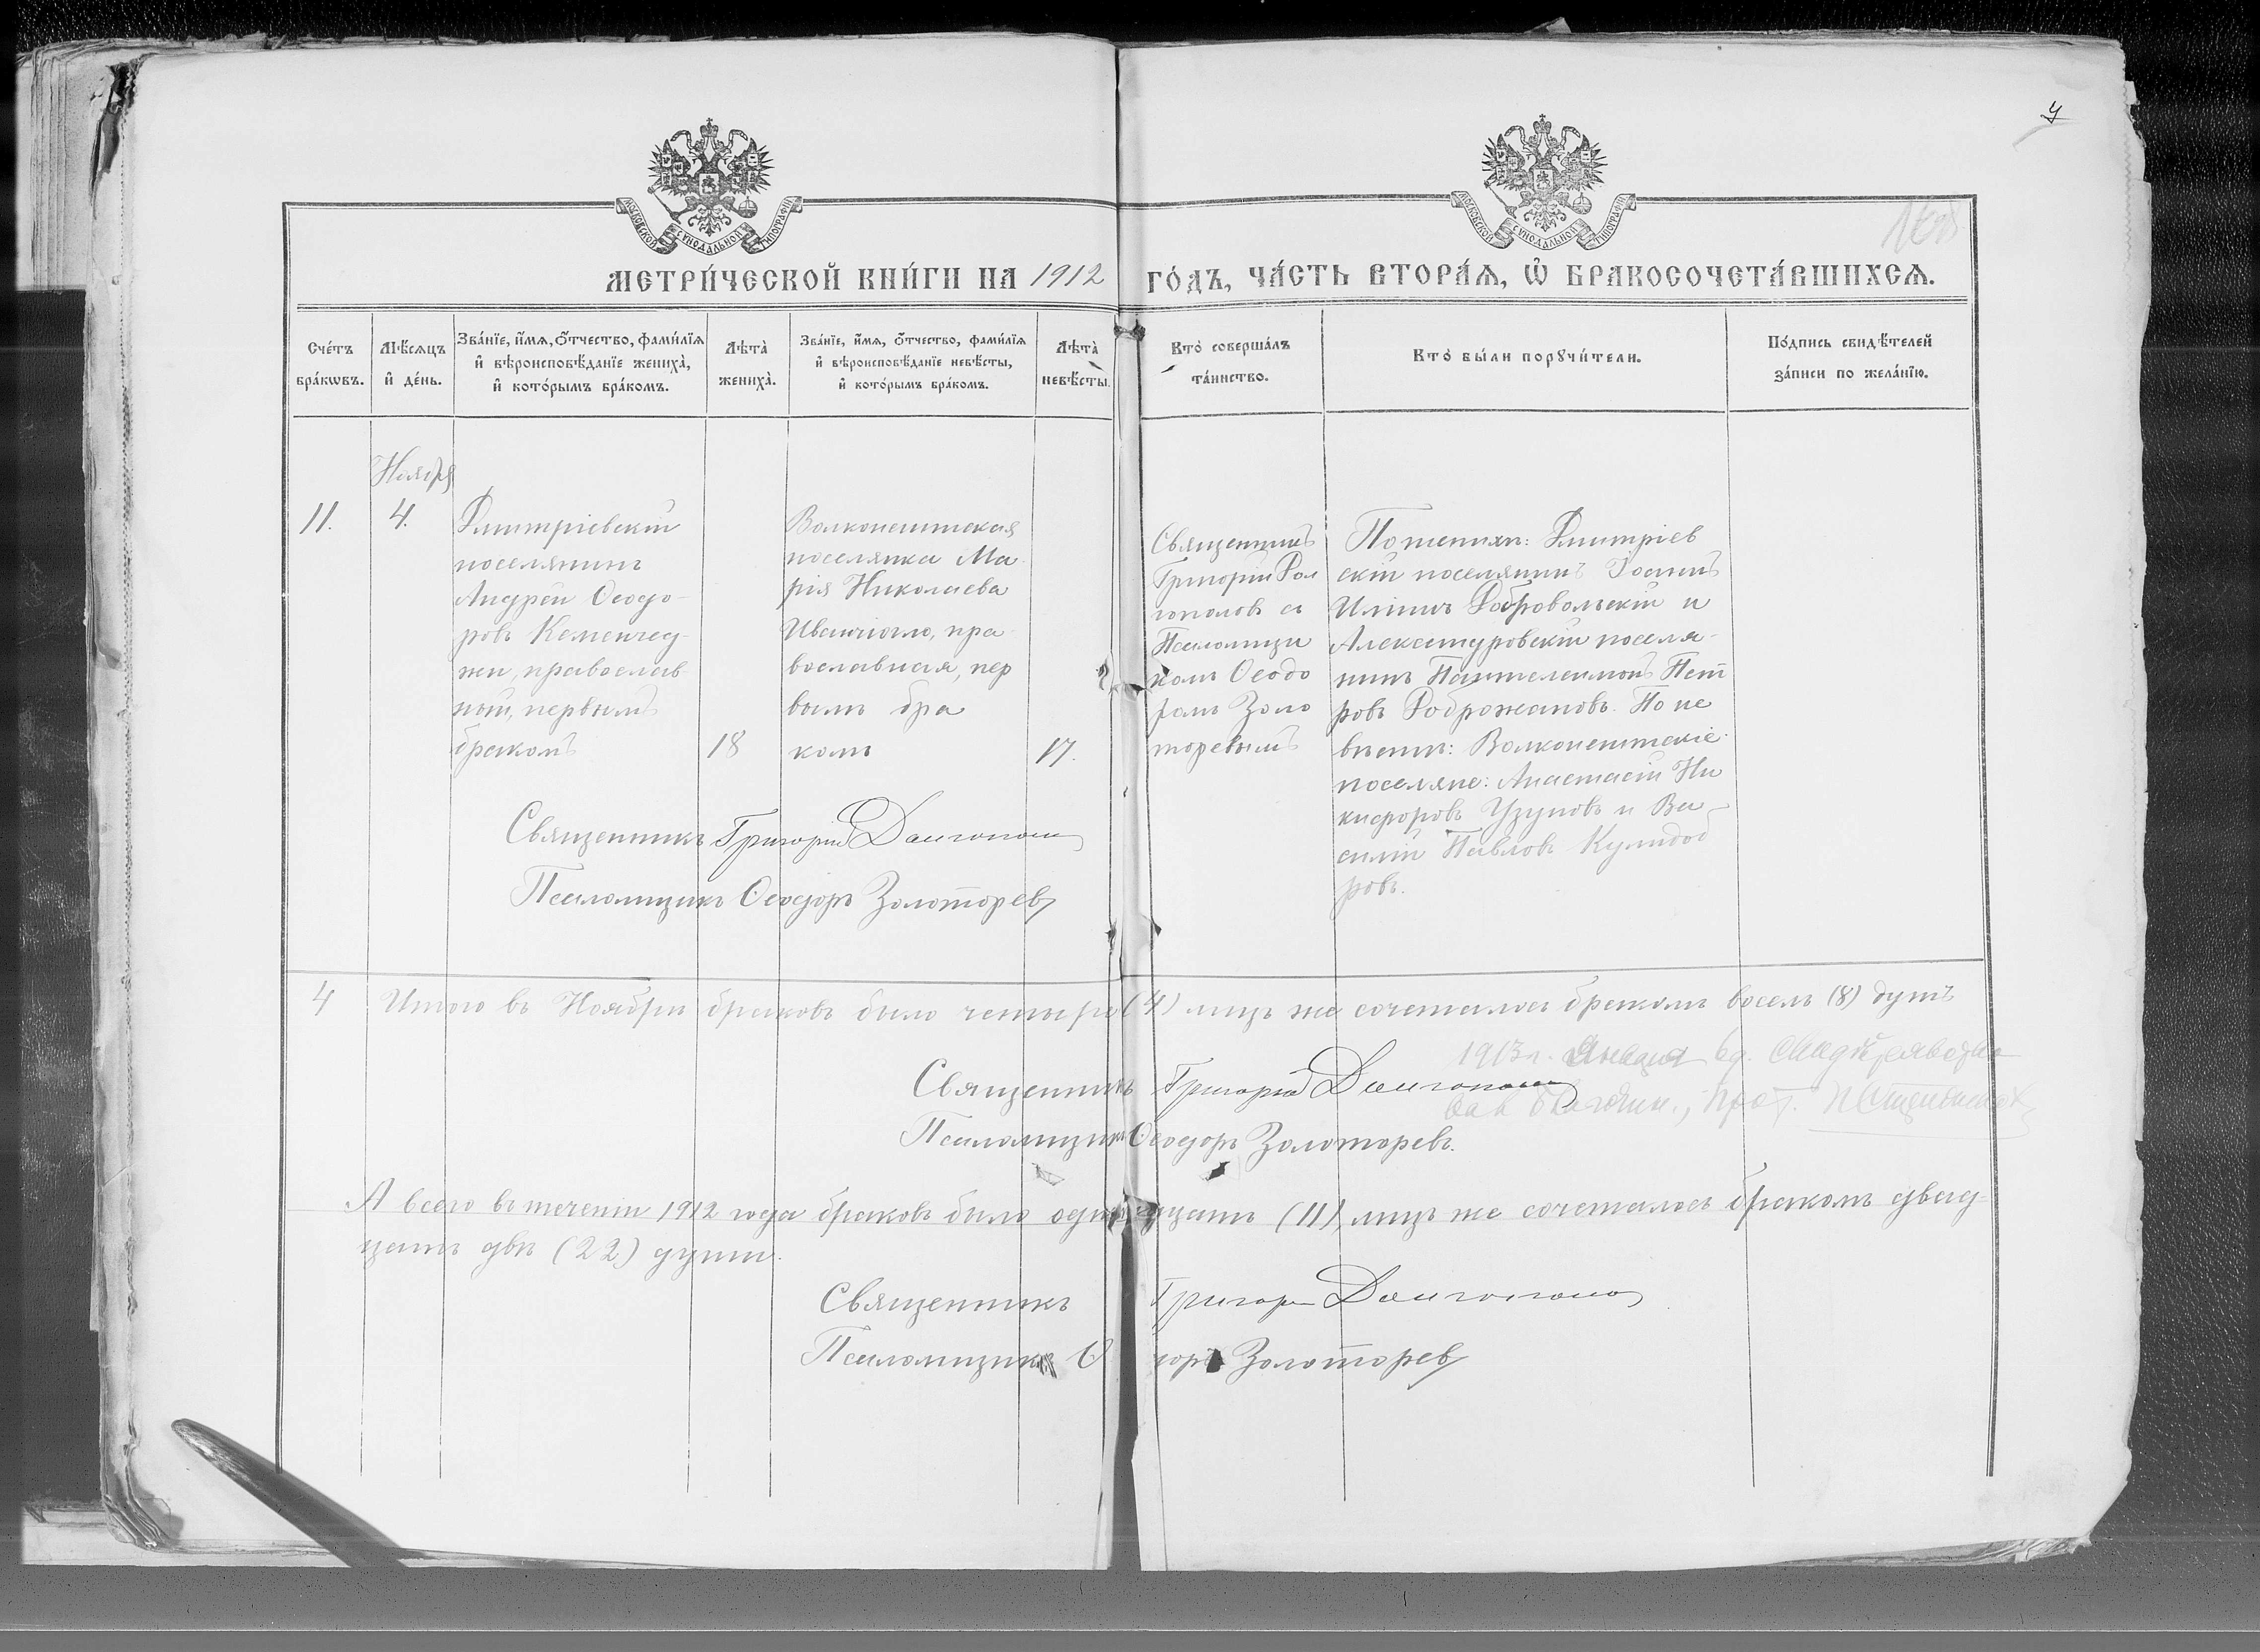 МОСКОВСКОЙ СѴНОДАЛЬНОЙ ТИПОГРАФІИ
МОСКОВСКОЙ СѴНОДАЛЬНОЙ ТИПОГРАФІИ
МЕТРИ́ЧЕСКОЙ КНИ́ГИ НА 1912 ГО́ДЪ, ЧА́СТЬ ВТОРА́Ѧ, Ѡ҆ БРАКОСОЧЕТА́ВШИХСѦ.
Сче́тъ
бра́кѡвъ.
Мѣ́сѧцъ
и҆ де́нь.
Зва́нїе, и҆́мѧ, ѻ҆́тчество, фами́лїѧ
и҆ вѣроисповѣ́данїе жениха̀,
и҆ кото́рымъ бра́комъ.
Лѣта̀
жениха̀.
Зва́нїе, и҆́мѧ, ѻ҆́тчество, фами́лїѧ
и҆ вѣроисповѣ́данїе невѣ́сты,
и҆ кото́рымъ бра́комъ.
Лѣта̀
невѣ́сты.
Кто̀ соверша́лъ
та́инство.
Кто̀ бы́ли порꙋчи́тели.
По́дпись свидѣ́телей
за́писи по жела́нїю.
Ноября
11.
4.
Дмитріевскій
поселянинъ
Андрей Ѳеодо-
ровъ Кеменчед-
жи, православ
ный, первымъ
бракомъ
18
Волконештская
поселянка Ма
рія Николаева
Иванчіогло, пра
вославная, пер
вымъ бра
комъ
17.
Священникъ
Григорій Дол
гополовъ съ
Псаломщи
комъ Ѳеодо
ромъ Золо
торевымъ
По женихѣ: Дмитріев
скій поселянинъ Іоаннъ
Иліинъ Добровольскій и
Александровскій поселя-
нинъ Пантелеимонъ Пет
ровъ Доброжановъ. По не
вѣстѣ: Волконештскіе
поселяне: Анастасій Ни
кифоровъ Узуновъ и Ва-
силій Павловъ Кулидоб
ровъ.
Священникъ Григорій Долгополов
Псаломщикъ Ѳеодоръ Золоторев
4 Итого въ Ноябрѣ браковъ было четыре (4) лицъ же сочеталось бракомъ восемь (8) душъ
1913 г. Января
Священникъ Григорій Долгополов
Прот.
Псаломщикъ Ѳеодоръ Золоторевъ.
А всего въ теченіи 1912 года браковъ было одиннадцать (11), лицъ же сочеталось бракомъ двад-
цать двѣ (22) души.
Священникъ Григорій Долгополов
Псаломщикъ Ѳ доръ Золоторев